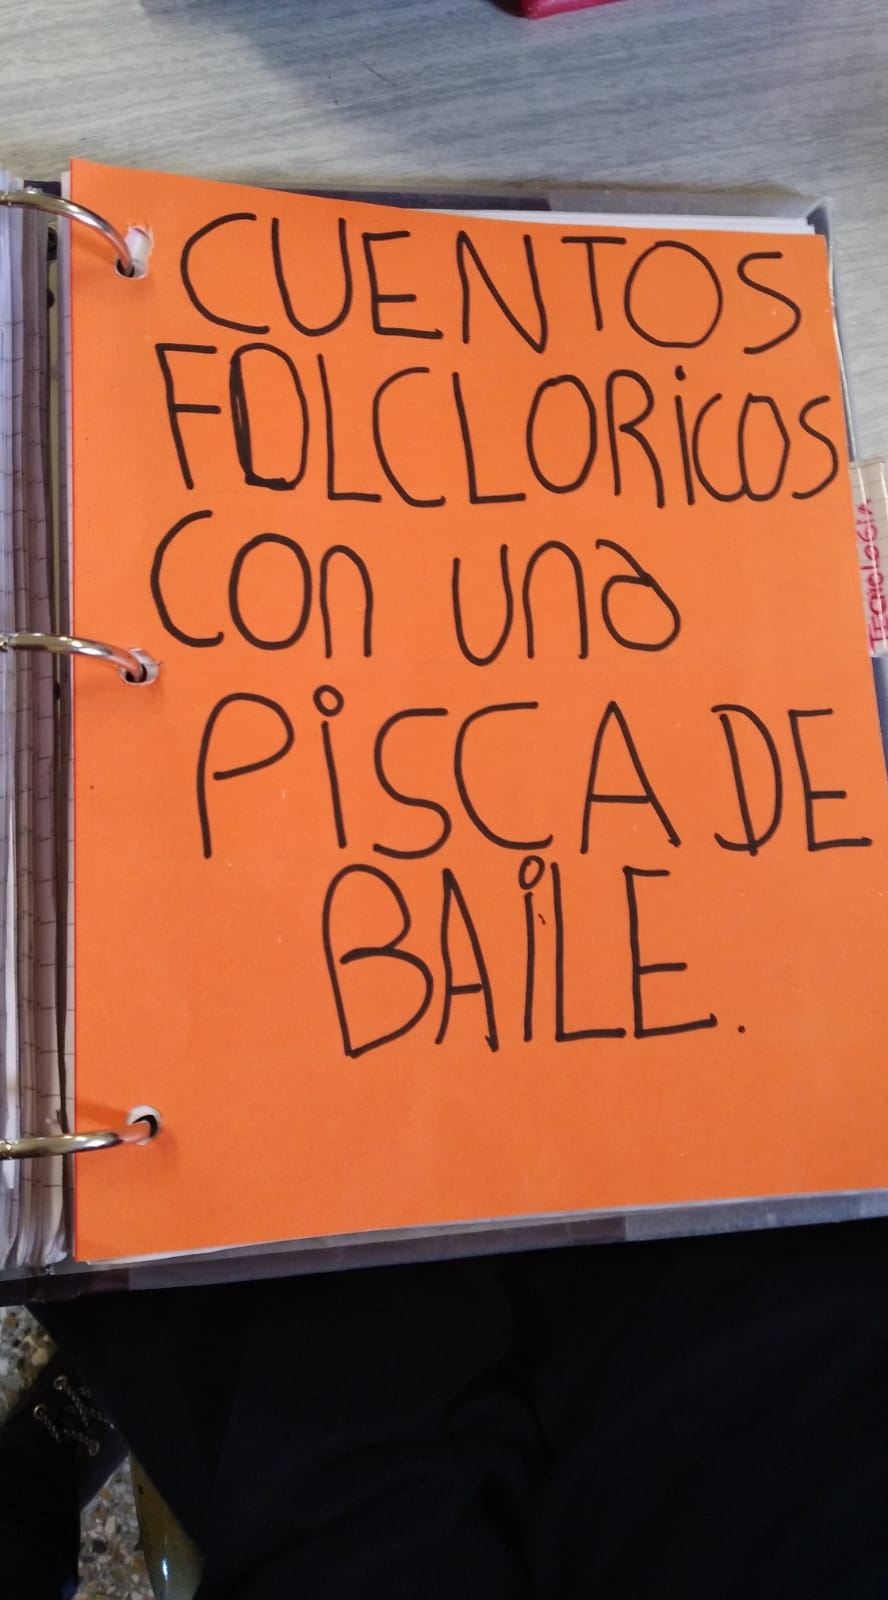 CUENTOS
FOLCLORiCOS
con una
PiSCA DE
BAiLE.
TECNOLOGÍA